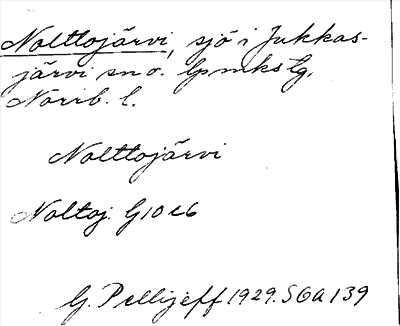 Nolttojärvi, sjö i Jukkas-
järvi sn o. lpmks lg,
Norrb. l.
Nolttojärvi
Noltoj. G10 c6
G. Pellijeff 1929. SOA 139